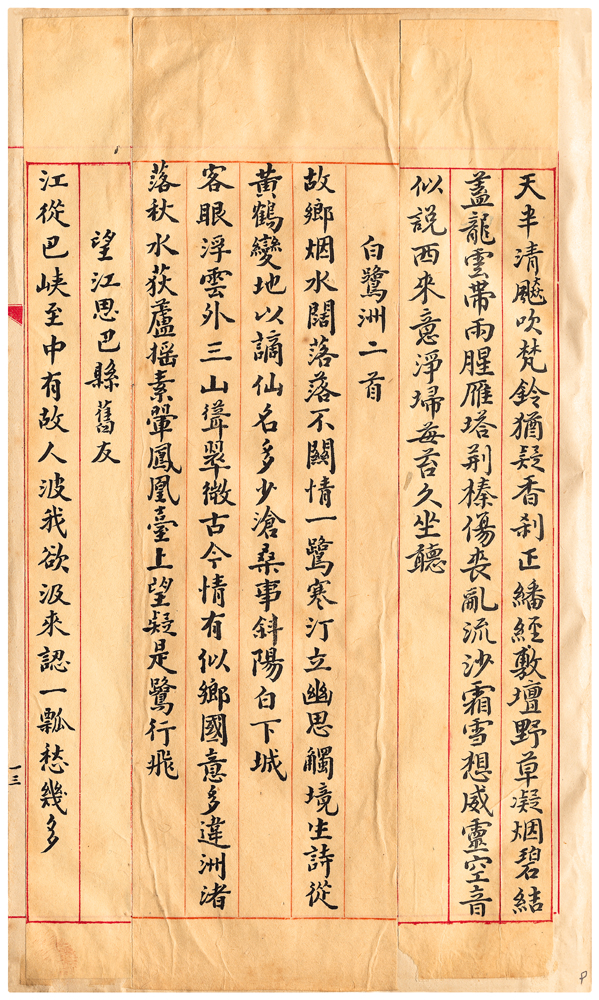 天半清飈吹梵鈴猶疑香刹正繙經敷壇野草凝烟碧結
蓋龍雲帶雨腥雁塔荆榛傷喪亂流沙霜雪想威靈空音
似説西來意淨埽莓苔久坐聽
白鷺洲二首
故鄉烟水闊落落不關情一鷺寒汀立幽思觸境生詩從
黃鶴變地以謫仙名多少滄桑事斜陽白下城
客眼浮雲外三山聳翠微古今情有似鄉國意多違洲渚
落秋水荻蘆摇素翬鳳凰臺上望疑是鷺行飛
望江思巴縣舊友
江從巴峽至中有故人波我欲汲來認一瓢愁幾多
一三
P